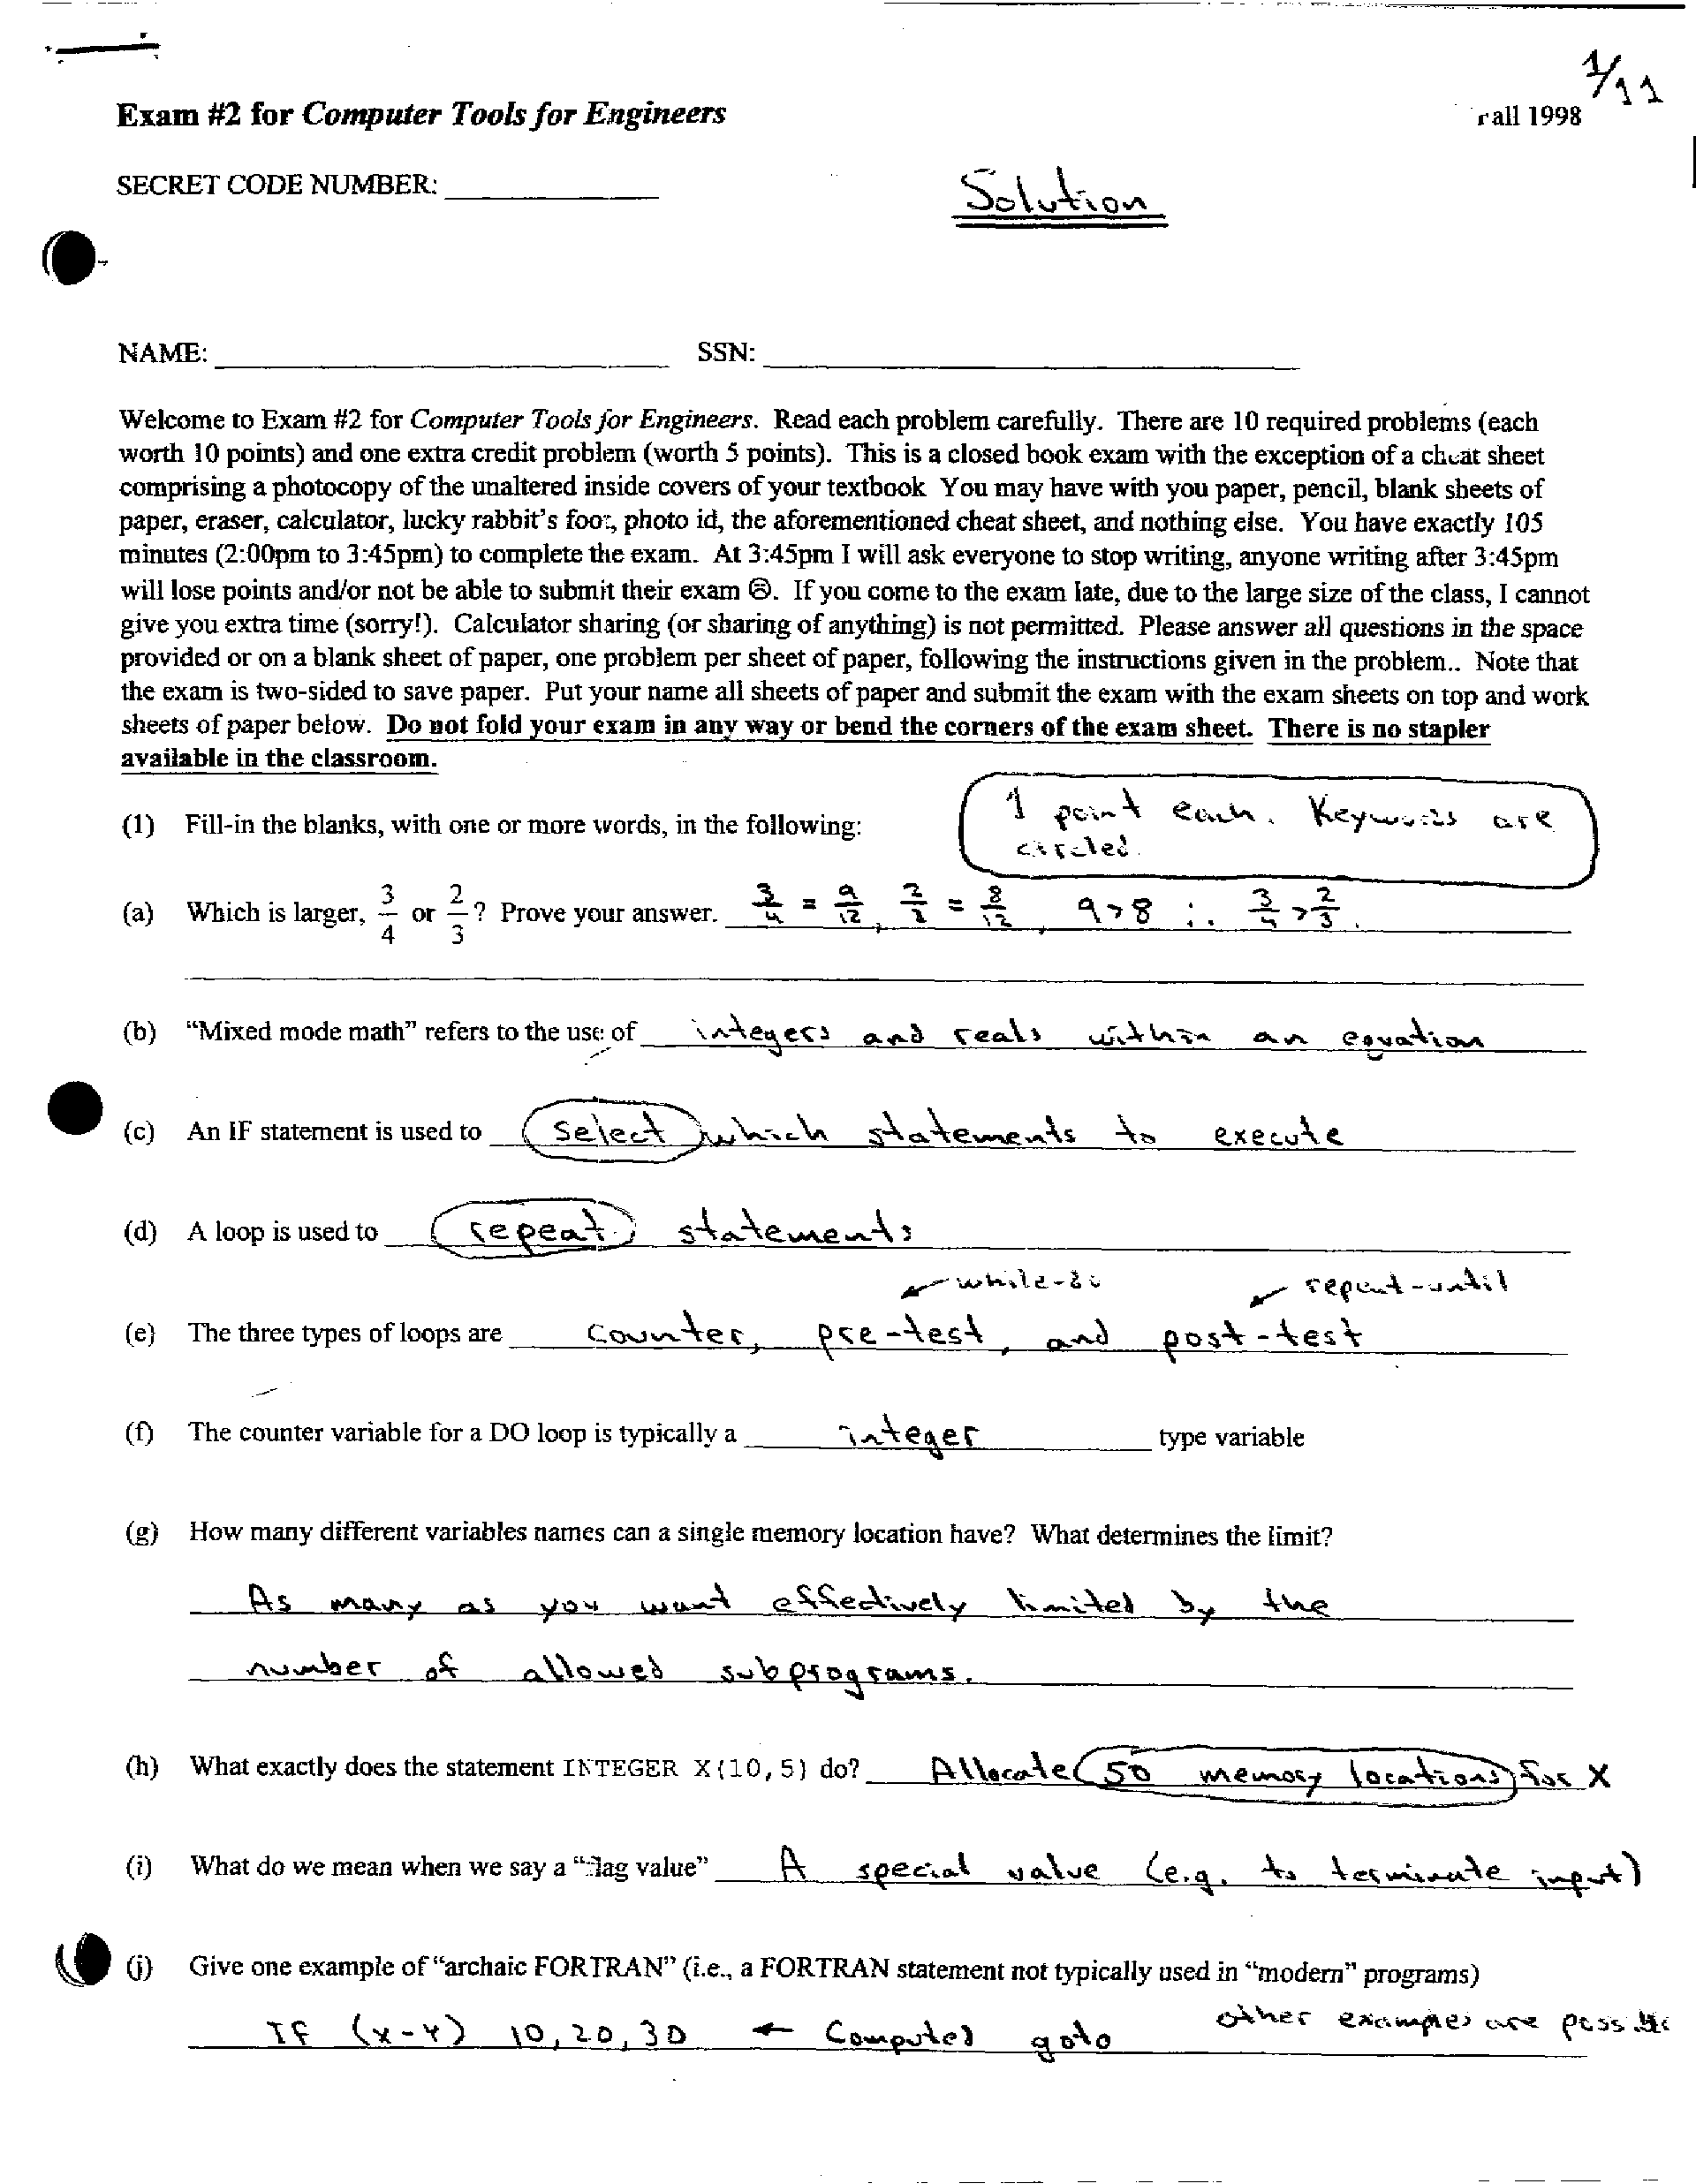 1/11
Exam #2 for Computer Tools for Engineers
rall 1998
SECRET CODE NUMBER:
Solution
NAME: SSN:
Welcome to Exam #2 for Computer Tools for Engineers. Read each problem carefully. There are 10 required problems (each
worth 10 points) and one extra credit problem (worth 5 points). This is a closed book exam with the exception of a cheat sheet
comprising a photocopy of the unaltered inside covers of your textbook You may have with you paper, pencil, blank sheets of
paper, eraser, calculator, lucky rabbit's foot, photo id, the aforementioned cheat sheet, and nothing else. You have exactly 105
minutes (2:00pm to 3:45pm) to complete the exam. At 3:45pm I will ask everyone to stop writing, anyone writing after 3:45pm
will lose points and/or not be able to submit their exam ☹. If you come to the exam late, due to the large size of the class, I cannot
give you extra time (sorry!). Calculator sharing (or sharing of anything) is not permitted. Please answer all questions in the space
provided or on a blank sheet of paper, one problem per sheet of paper, following the instructions given in the problem.. Note that
the exam is two-sided to save paper. Put your name all sheets of paper and submit the exam with the exam sheets on top and work
sheets of paper below. Do not fold your exam in any way or bend the corners of the exam sheet. There is no stapler
available in the classroom.
1 point each. Keywords are
circled.
(1) Fill-in the blanks, with one or more words, in the following:
(a) Which is larger, 3/4 or 2/3? Prove your answer. 3/4 = 9/12, 2/3 = 8/12, 9>8 ∴ 3/4 > 2/3.
(b) "Mixed mode math" refers to the use of integers and reals within an equation
(c) An IF statement is used to select which statements to execute
(d) A loop is used to repeat statements
while-do repeat-until
(e) The three types of loops are counter, pre-test, and post-test
(f) The counter variable for a DO loop is typically a integer type variable
(g) How many different variables names can a single memory location have? What determines the limit?
As many as you want effectively limited by the
number of allowed subprograms.
(h) What exactly does the statement INTEGER X(10,5) do? Allocate 50 memory locations for X
(i) What do we mean when we say a "flag value" A special value (e.g. to terminate input)
(j) Give one example of "archaic FORTRAN" (i.e., a FORTRAN statement not typically used in "modern" programs)
IF (X-Y) 10,20,30 ← Computed goto other examples are possible